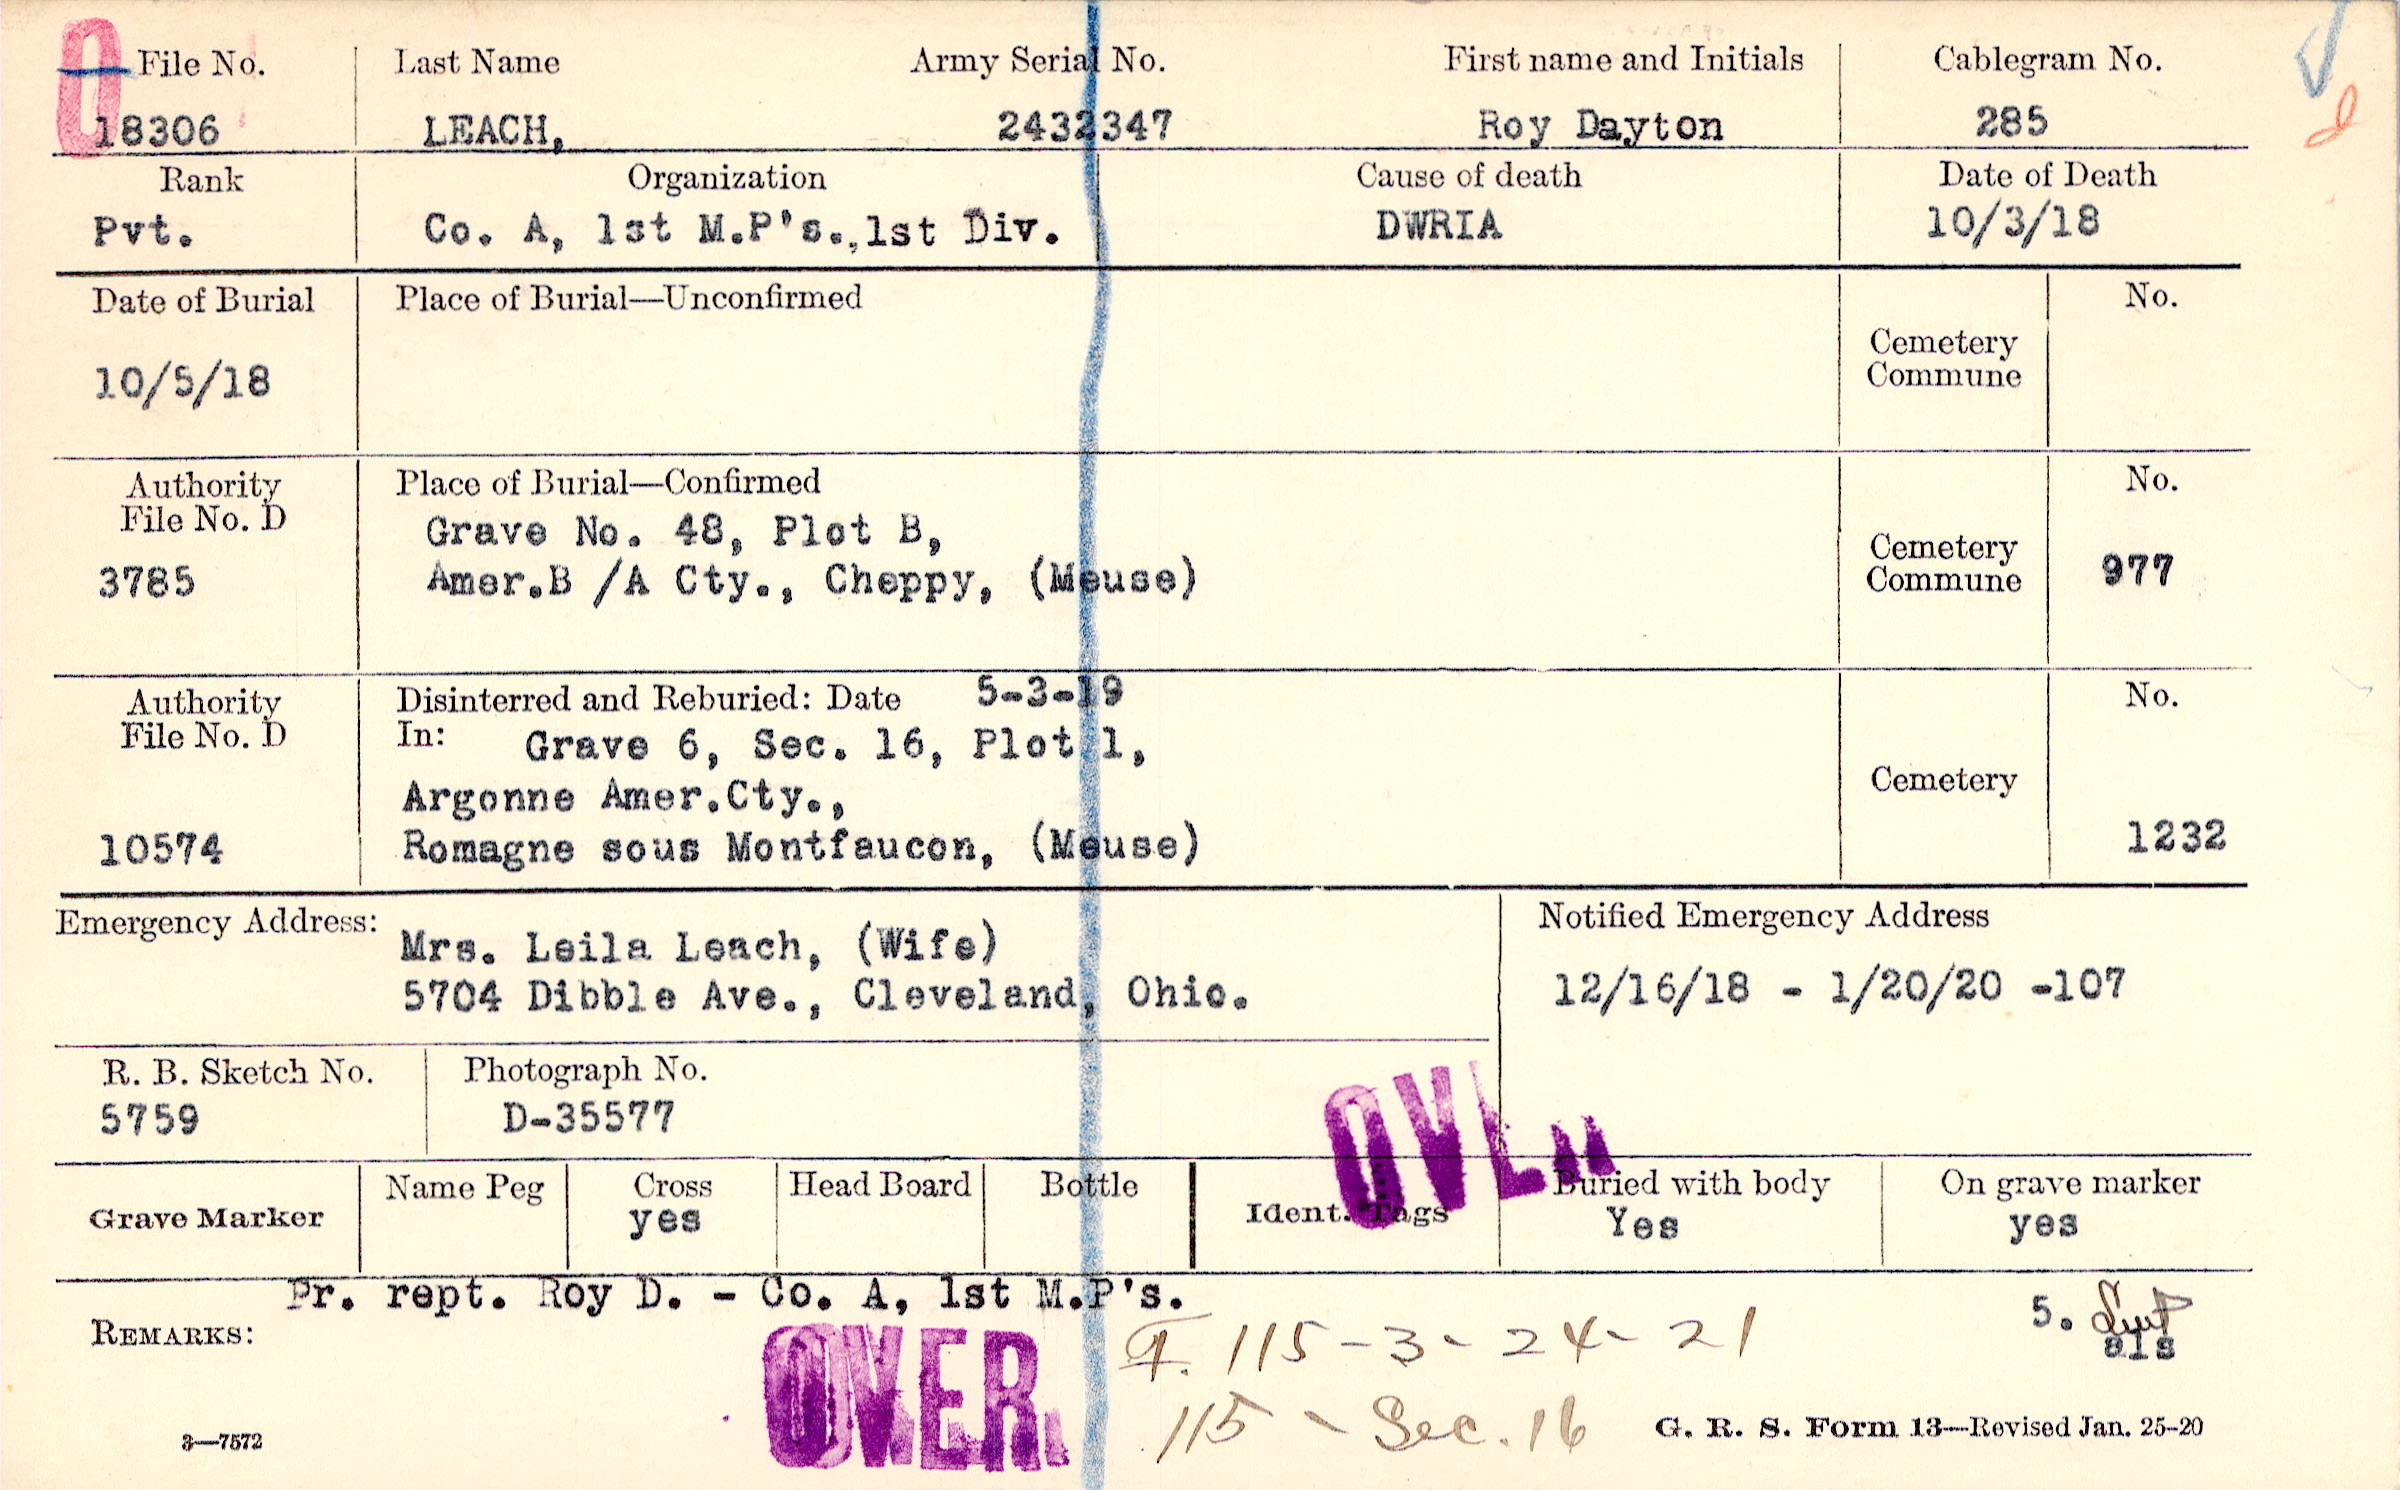 File No. Last Name Army Serial No. First name and Initials Cablegram No.
18306 LEACH, 2432347 Roy Dayton 285
Rank Organization Cause of death Date of Death
Pvt. Co. A, 1st M.P's.,1st Div. DWRIA 10/3/18
Date of Burial Place of Burial—Unconfirmed No.
Cemetery
Commune
10/5/18
Authority Place of Burial—Confirmed No.
File No. D
Grave No. 48, Plot B,
Cemetery
3785 Amer.B /A Cty., Cheppy, (Meuse) Commune 977
Authority Disinterred and Reburied: Date 5-3-19 No.
File No. D In: Grave 6, Sec. 16, Plot 1,
Argonne Amer.Cty., Cemetery
10574 Romagne sous Montfaucon, (Meuse) 1232
Emergency Address: Notified Emergency Address
Mrs. Leila Leach, (Wife)
5704 Dibble Ave., Cleveland, Ohio. 12/16/18 - 1/20/20 -107
R. B. Sketch No. Photograph No.
5759 D-35577
OVER
Name Peg Cross Head Board Bottle Buried with body On grave marker
Grave Marker yes Ident. Tags Yes yes
Pr. rept. Roy D. - Co. A, 1st M.P's.
REMARKS: 115-3-24-21 5.
als
OVER.
115 - Sec. 16
3—7572 G. R. S. Form 13—Revised Jan. 25-20